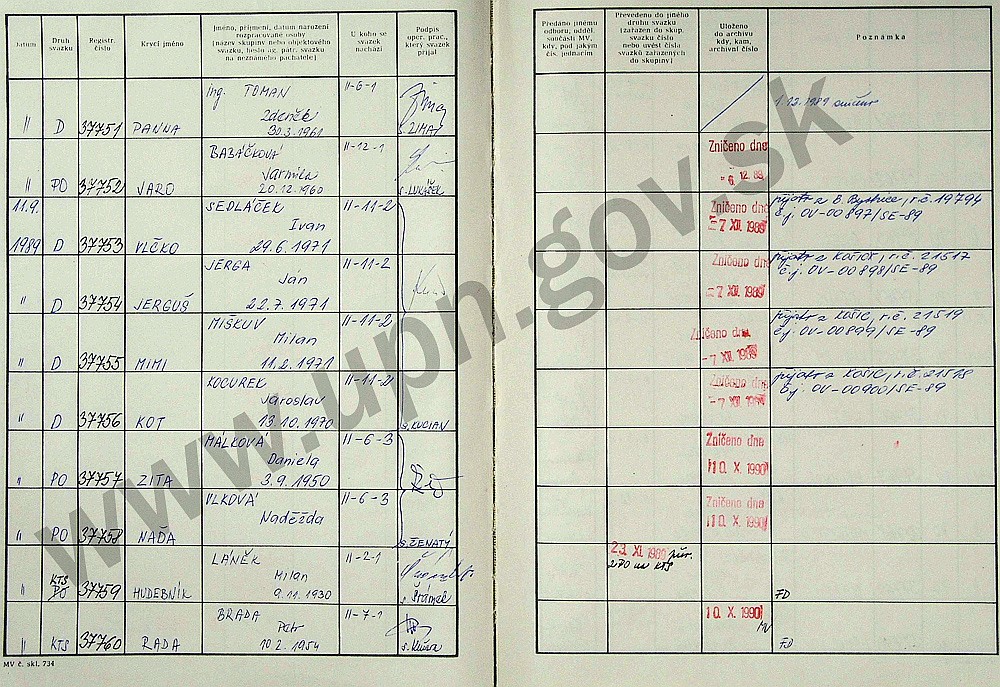 Datum
Druh svazku
Registr. číslo
Krycí jméno
Jméno, příjmení, datum narození
rozpracované osoby
(název skupiny nebo objektového
svazku, heslo ag. pátr. svazku
na neznámého pachatele)
U koho se svazek nachází
Podpis
oper. prac.,
který svazek
přijal
Předáno jinému
odboru, odděl.
součásti MV,
kdy, pod jakým
čís. jednacím
Převedeno do jiného
druhu svazku
(zařazen do skup.
svazku číslo
nebo uvést čísla
svazků zařazených
do skupiny)
Uloženo
do archivu
kdy, kam,
archivní číslo
Poznámka
Ing. TOMAN II-6-1
Zdeněk
" D 37751 PANNA 30.3.1961 s. ZIMA
1.12.1989
BABÁČKOVÁ II-12-1
Jarmila
" PO 37752 JARO 20.12.1960 s. LUKÁČEK
Zničeno dne
-6. 12. 89
11.9. SEDLÁČEK II-11-2
Ivan
1989 D 37753 VLČKO 29.6.1971
Zničeno dne
-7 XII. 1989
přijato z B. Bystrice, r.č. 19794
č.j. OV-00897/SE-89
JERGA II-11-2
Ján
" D 37754 JERGUŠ 22.7.1971
Zničeno dne
-7 XII. 1989
přijato z KOŠIC, r.č. 21517
č.j. OV-00898/SE-89
MIŠKUV II-11-2
Milan
" D 37755 MIMI 11.2.1971
Zničeno dne
-7 XII. 1989
přijato z KOŠIC, r.č. 21519
č.j. OV-00899/SE-89
KOCUREK II-11-2
Jaroslav
" D 37756 KOT 13.10.1970 s. KUCIAN
Zničeno dne
-7 XII. 1989
přijato z KOŠIC, r.č. 21518
č.j. OV-00900/SE-89
MÁLKOVÁ II-6-3
Daniela
" PO 37757 ZITA 3.9.1950
Zničeno dne
10. X. 1990
VLKOVÁ II-6-3
Naděžda
" PO 37758 NAĎA s. ŽENATÝ
Zničeno dne
10. X. 1990
LÁNĚK II-2-1
KTS Milan
" PO 37759 HUDEBNÍK 9.11.1930
23. XI. 1989
z PO na KTS
FD
BRADA II-7-1
Petr
" KTS 37760 RADA 10.2.1954
10. X. 1990
MV
FD
MV č. skl. 734
www.upn.gov.sk